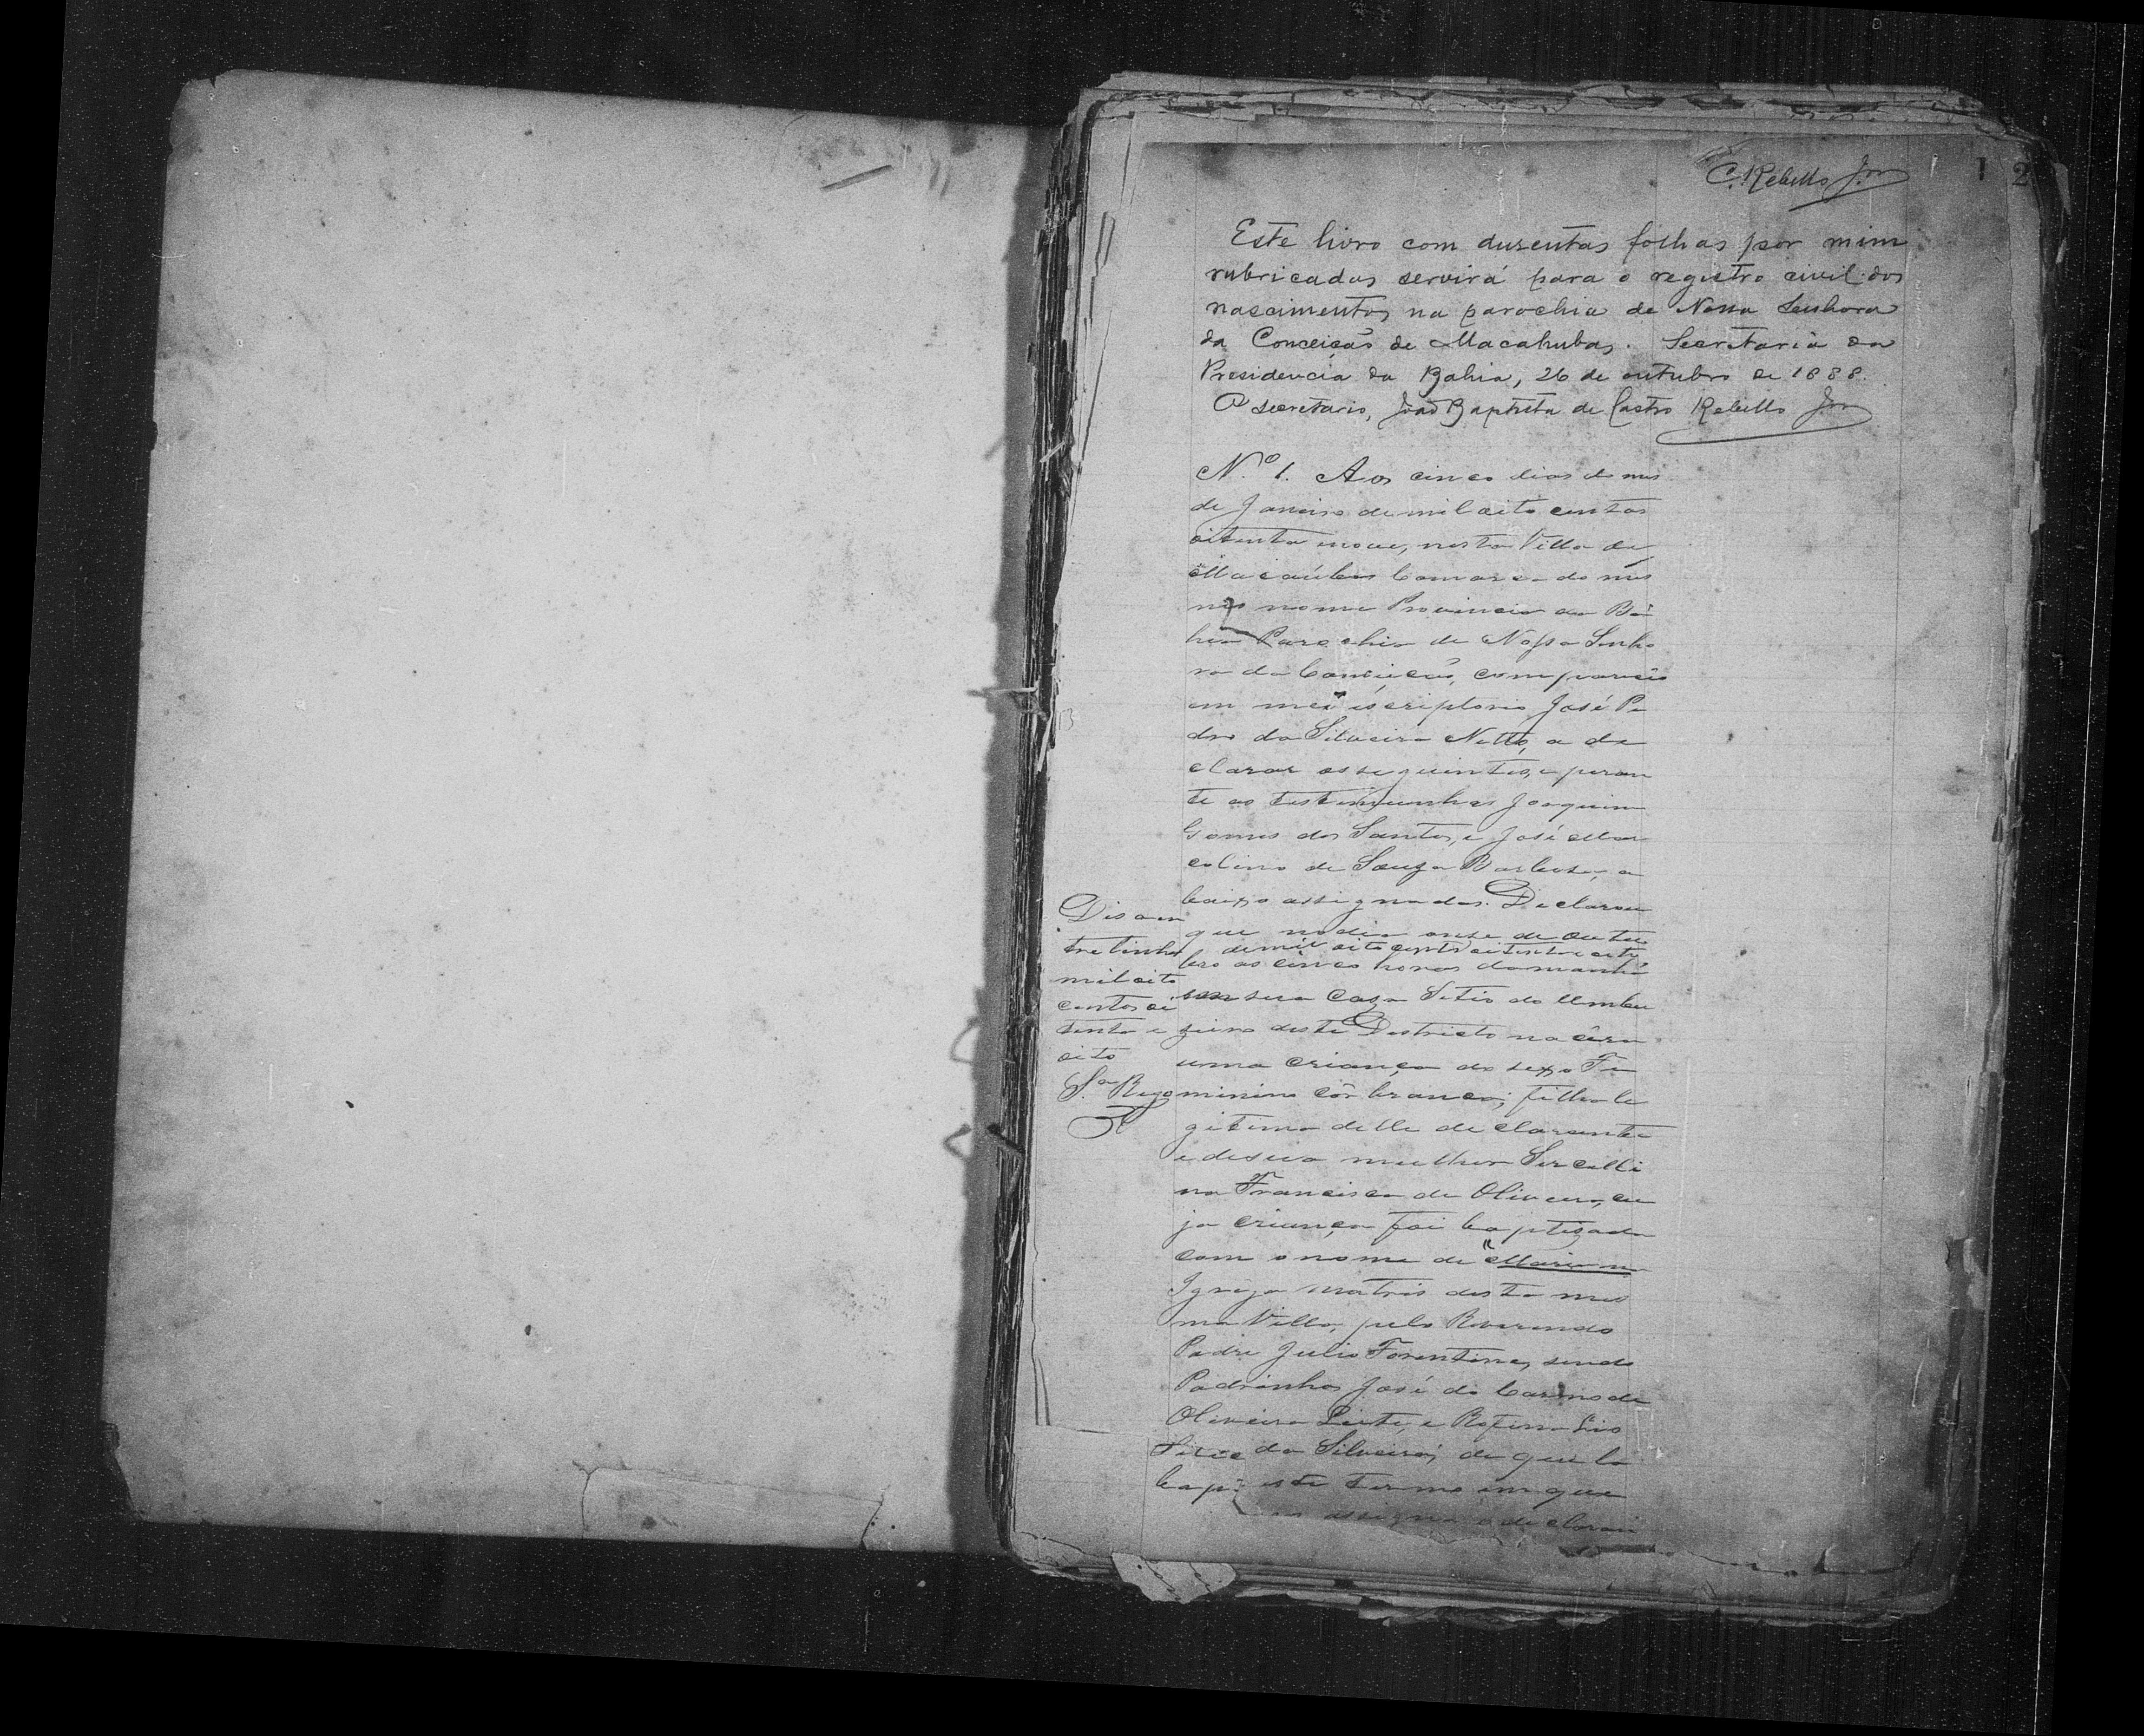 C. Rebello Jor
1 2
Este livro com duzentas folhas por mim
rubricadas servirá para o registro civil dos
nascimentos na parochia de Nossa Senhora
da Conceição de Macahubas. Secretaria da
Presidencia da Bahia, 26 de outubro de 1888.
O secretario, João Baptista de Castro Rebello Jor
Nº 1. Aos cinco dias do mes
de Janeiro de mil oito centos
oitenta enove, nesta Villa de
Macaúbas Comarca do mes
mo nome Provincia da Ba
hia Parochia de Nossa Senho
ra da Conceição, compareceo
em meu escriptorio José Pe
dro da Silveira Netto, a de
clarar o seguinte, e peran
te as testimunhas Joaquim
Gomes dos Santos, e José Mar
colino de Souza Barbosa, a
baixo assignados. Declarou
que no dia onze de outu
de mil oito centos oitenta e oito
bro as cinco horas da manhã
em sua casa Sitio do Umbu
zeiro deste Destricto nacêra
uma criança do sexo Fi
minino côr branca; filha le
gitima delle declarante
e de sua mulher Sercelli
na Francisca de Oliveira, cu
ja criança foi baptizada
com o nome de "Maria na
Igreja matris desta mes
ma Villa, pelo Reverendo
Padre Julio Forentino, sendo
Padrinhos José do Carmo de
Oliveira Leite, e Rofina
da Silveira; de que la
este termo em que
assigna o declaran
Diso en
tre linha
mil oito
centos oi
tenta e
oito